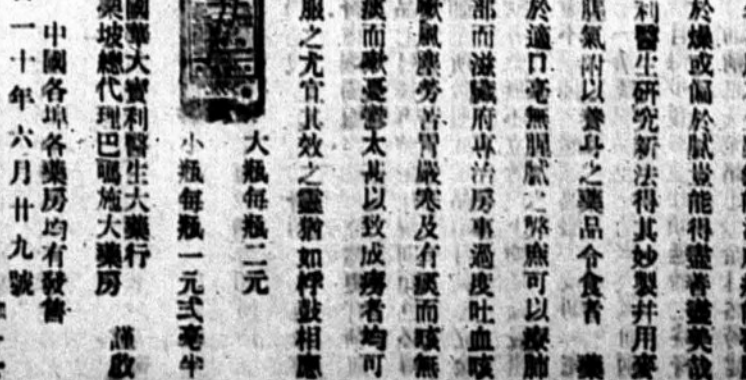 於燥或偏於膩豈能得盡善盡美故
利醫生研究新法得其妙製幷用麥
脾氣附以養身之藥品令食者 藥
於適口毫無腥膩之弊應可以療肺
部而滋臟府專治房事過度吐血咳
嗽風塵勞苦冒嚴寒及有痰而咳無
痰而嗽憂鬱太甚以致成癆者均可
服之尤宜其效之靈猶如桴鼓相應
大瓶每瓶二元
小瓶每瓶一元式毫半
國華大寶利醫生大藥行
樂坡總代理巴嗎施大藥房 謹啟
中國各埠各藥房均有發售
一十年六月廿九號